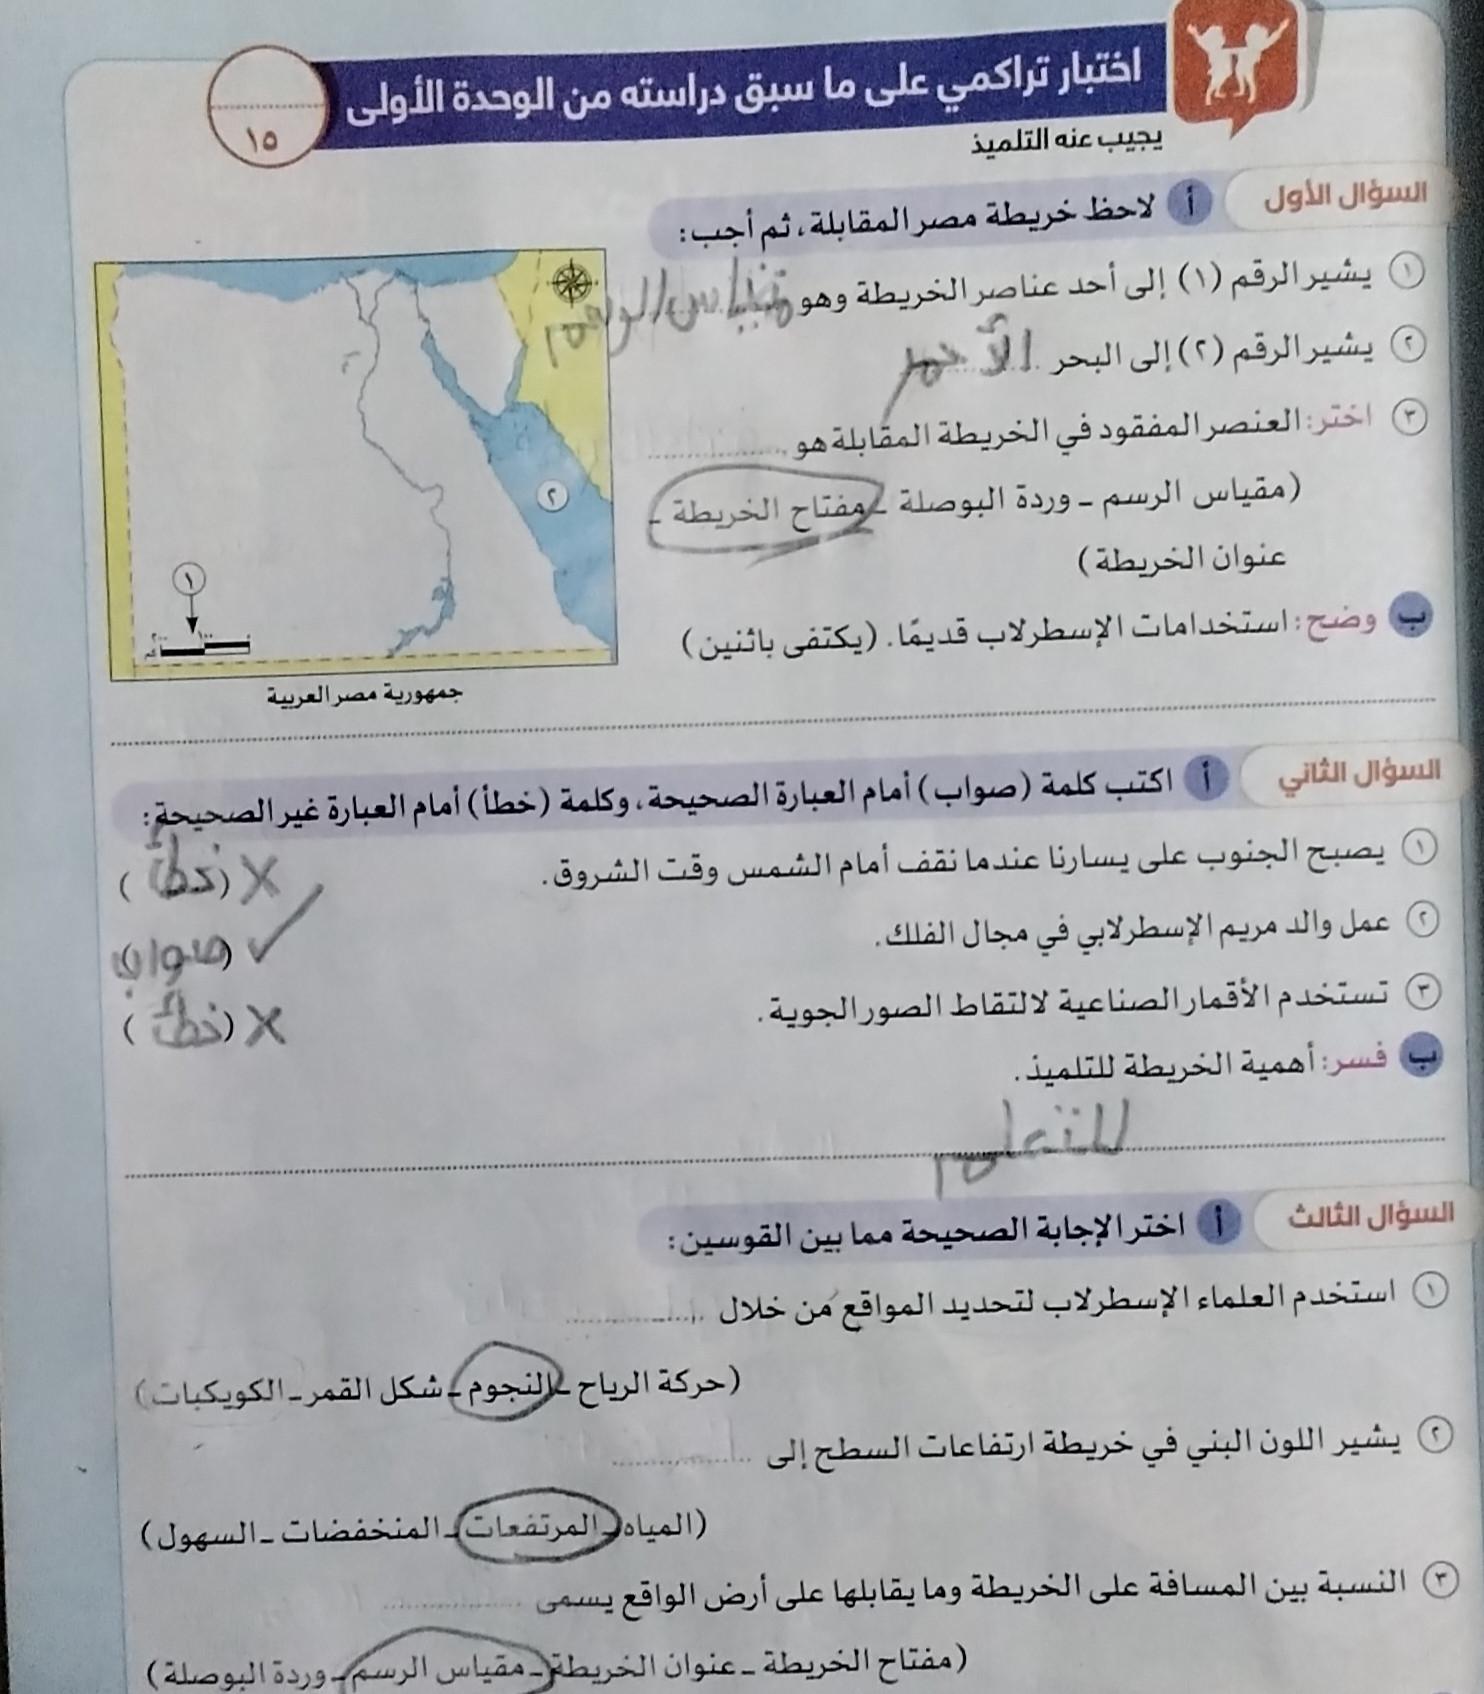 اختبار تراكمي على ما سبق دراسته من الوحدة الأولى
١٥
يجيب عنه التلميذ
السؤال الأول أ لاحظ خريطة مصر المقابلة، ثم أجب:
١ يشير الرقم (١) إلى أحد عناصر الخريطة وهو مقياس الرسم
٢ يشير الرقم (٢) إلى البحر الأحمر
٣ اختر: العنصر المفقود في الخريطة المقابلة هو ..............
(مقياس الرسم – وردة البوصلة – مفتاح الخريطة –
عنوان الخريطة)
ب وضح: استخدامات الإسطرلاب قديمًا. (يكتفى باثنين)
٢
١
٠ ١٠٠ ٢٠٠ كم
جمهورية مصر العربية
السؤال الثاني أ اكتب كلمة (صواب) أمام العبارة الصحيحة، وكلمة (خطأ) أمام العبارة غير الصحيحة:
١ يصبح الجنوب على يسارنا عندما نقف أمام الشمس وقت الشروق. X (خطأ)
٢ عمل والد مريم الإسطرلابي في مجال الفلك. ✓ (صواب)
٣ تستخدم الأقمار الصناعية لالتقاط الصور الجوية. X (خطأ)
ب فسر: أهمية الخريطة للتلميذ.
للتعلم
السؤال الثالث أ اختر الإجابة الصحيحة مما بين القوسين:
١ استخدم العلماء الإسطرلاب لتحديد المواقع من خلال ..............
(حركة الرياح – النجوم – شكل القمر – الكويكبات)
٢ يشير اللون البني في خريطة ارتفاعات السطح إلى ..............
(المياه – المرتفعات – المنخفضات – السهول)
٣ النسبة بين المسافة على الخريطة وما يقابلها على أرض الواقع يسمى ..............
(مفتاح الخريطة – عنوان الخريطة – مقياس الرسم – وردة البوصلة)